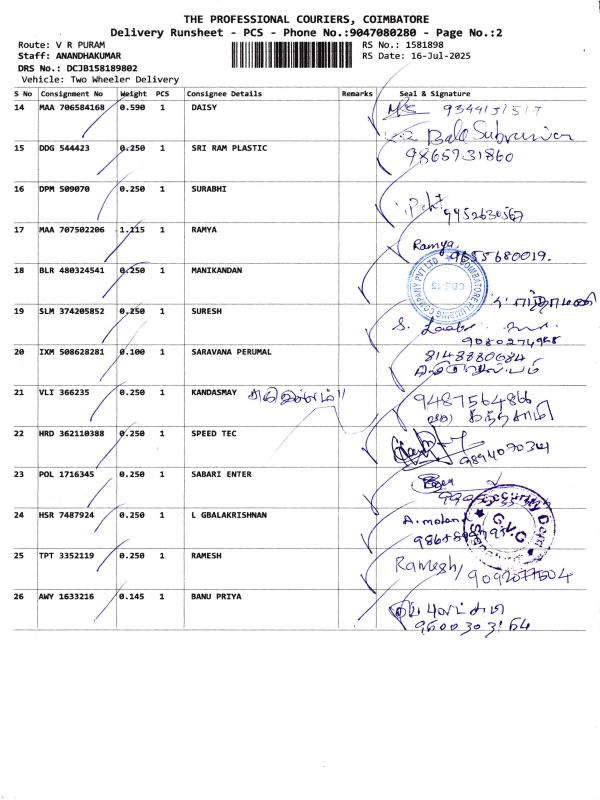 THE PROFESSIONAL COURIERS, COIMBATORE
Delivery Runsheet - PCS - Phone No.:9047080280 - Page No.:2
Route: V R PURAM RS No.: 1581898
Staff: ANANDHAKUMAR RS Date: 16-Jul-2025
DRS No.: DCJB158189802
Vehicle: Two Wheeler Delivery
S No Consignment No Weight PCS Consignee Details Remarks Seal & Signature
14 MAA 706584168 0.590 1 DAISY
15 DDG 544423 0.250 1 SRI RAM PLASTIC
9865931860
16 DPM 509070 0.250 1 SURABHI
17 MAA 707502206 1.115 1 RAMYA
Ramya
9655680019.
18 BLR 480324541 0.250 1 MANIKANDAN
COIMBATORE PLUMBING COMPANY PVT LTD
CBE-15
19 SLM 374205852 0.250 1 SURESH
20 IXM 508628281 0.100 1 SARAVANA PERUMAL
8148880684
21 VLI 366235 0.250 1 KANDASMAY
9487564866
22 HRD 362110388 0.250 1 SPEED TEC
23 POL 1716345 0.250 1 SABARI ENTER
24 HSR 7487924 0.250 1 L GBALAKRISHNAN
G.V.C
25 TPT 3352119 0.250 1 RAMESH
Ramesh
26 AWY 1633216 0.145 1 BANU PRIYA
9600303164